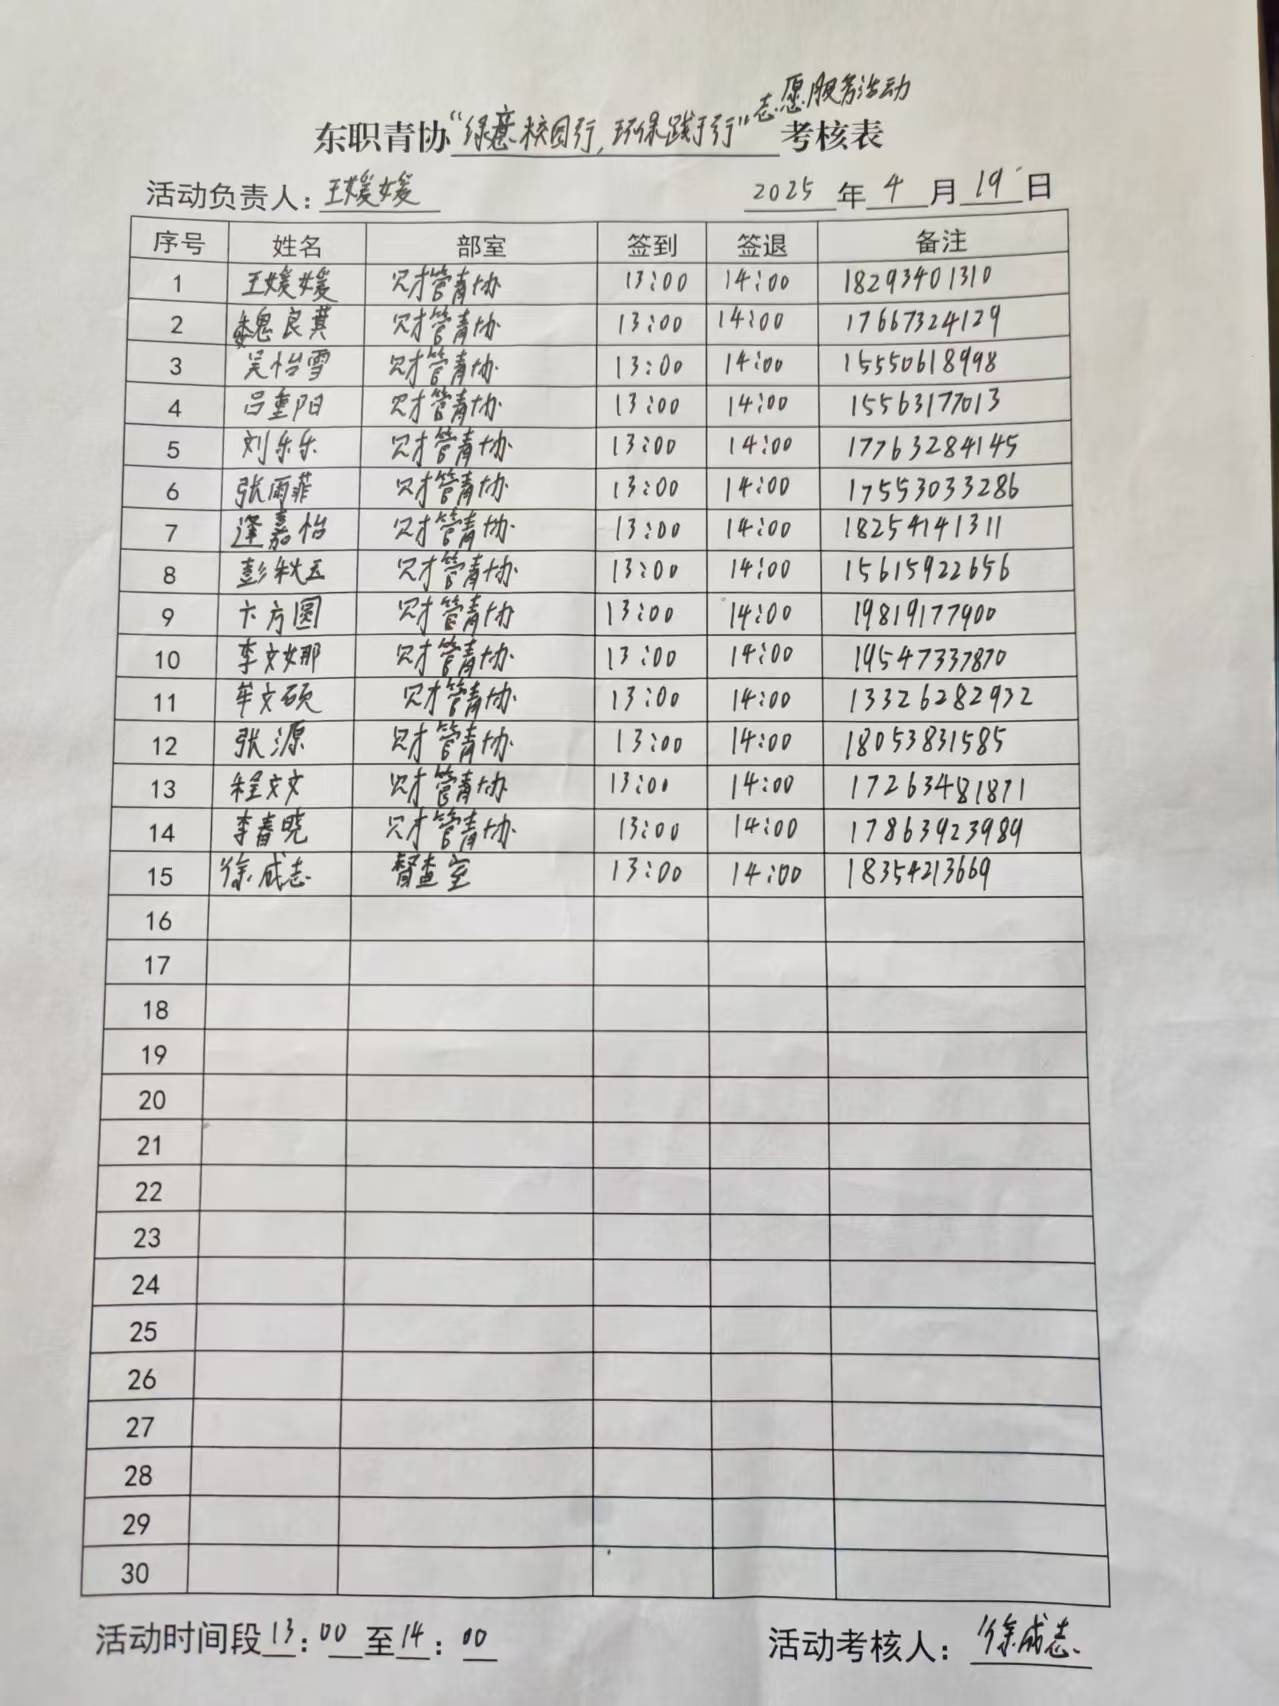 志愿服务活动
东职青协“绿意校园行,环保践于行”考核表
活动负责人:王媛媛 2025年4月19日
序号 姓名 部室 签到 签退 备注
1 王媛媛 财管青协 13:00 14:00 18293401310
2 魏良萁 财管青协 13:00 14:00 17667324129
3 吴怡雪 财管青协 13:00 14:00 15550618998
4 吕重阳 财管青协 13:00 14:00 15563177013
5 刘乐乐 财管青协 13:00 14:00 17763284145
6 张雨菲 财管青协 13:00 14:00 17553033286
7 逄嘉怡 财管青协 13:00 14:00 18254141311
8 彭秋玉 财管青协 13:00 14:00 15615922656
9 卞方圆 财管青协 13:00 14:00 19819177900
10 李文娜 财管青协 13:00 14:00 19547337870
11 牟文硕 财管青协 13:00 14:00 13326282932
12 张源 财管青协 13:00 14:00 18053831585
13 程文文 财管青协 13:00 14:00 17263481871
14 李春晓 财管青协 13:00 14:00 17863923989
15 徐成志 督查室 13:00 14:00 18354213669
16
17
18
19
20
21
22
23
24
25
26
27
28
29
30
活动时间段13:00至14:00 活动考核人:徐成志